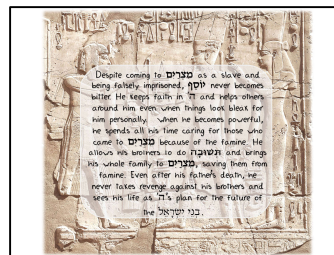 Despite coming to מִצְרַיִם as a slave and
being falsely imprisoned, יוֹסֵף never becomes
bitter. He keeps faith in ה' and helps others
around him even when things look bleak for
him personally. When he becomes powerful,
he spends all his time caring for those who
came to מִצְרַיִם because of the famine. He
allows his brothers to do תְּשׁוּבָה and brings
his whole family to מִצְרַיִם, saving them from
famine. Even after his father's death, he
never takes revenge against his brothers and
sees his life as ה's plan for the future of
the בְּנֵי יִשְׂרָאֵל.